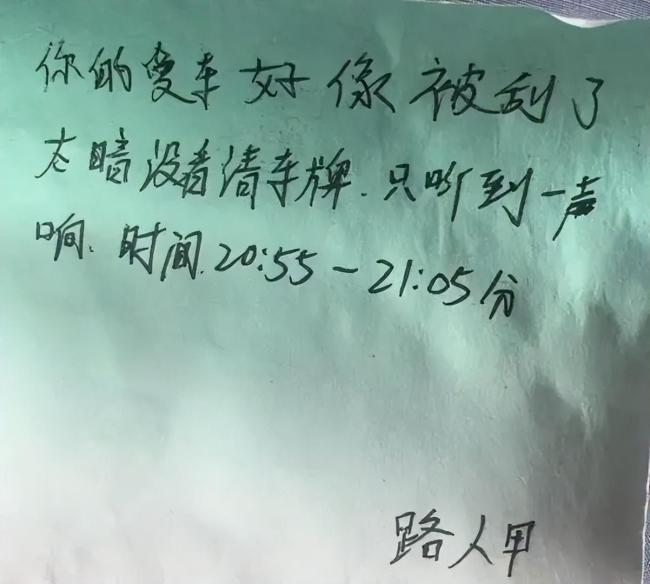 你的爱车好像被刮了
太暗没看清车牌.只听到一声
响.时间.20:55-21:05分
路人甲